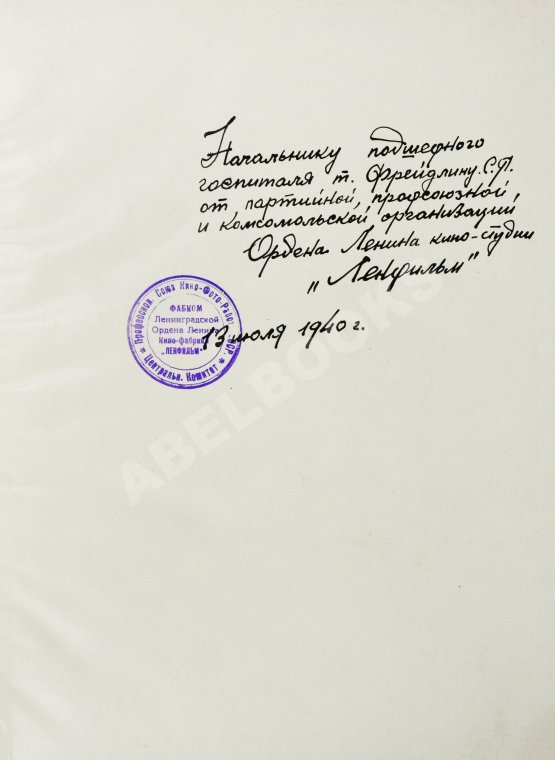 Начальнику подшефного
госпиталя т. Фрейдлину. С.П.
от партийной, профсоюзной,
и комсомольской организаций
Ордена Ленина кино-студии
"Ленфильм"
13 июля 1940 г.
Професcион. Союз Кино-Фото-Работ
ФАБКОМ
Ленинградской
Ордена Ленина
Кино-фабрики
"ЛЕНФИЛЬМ"
* Центральн. Комитет *
ABELBOOKS